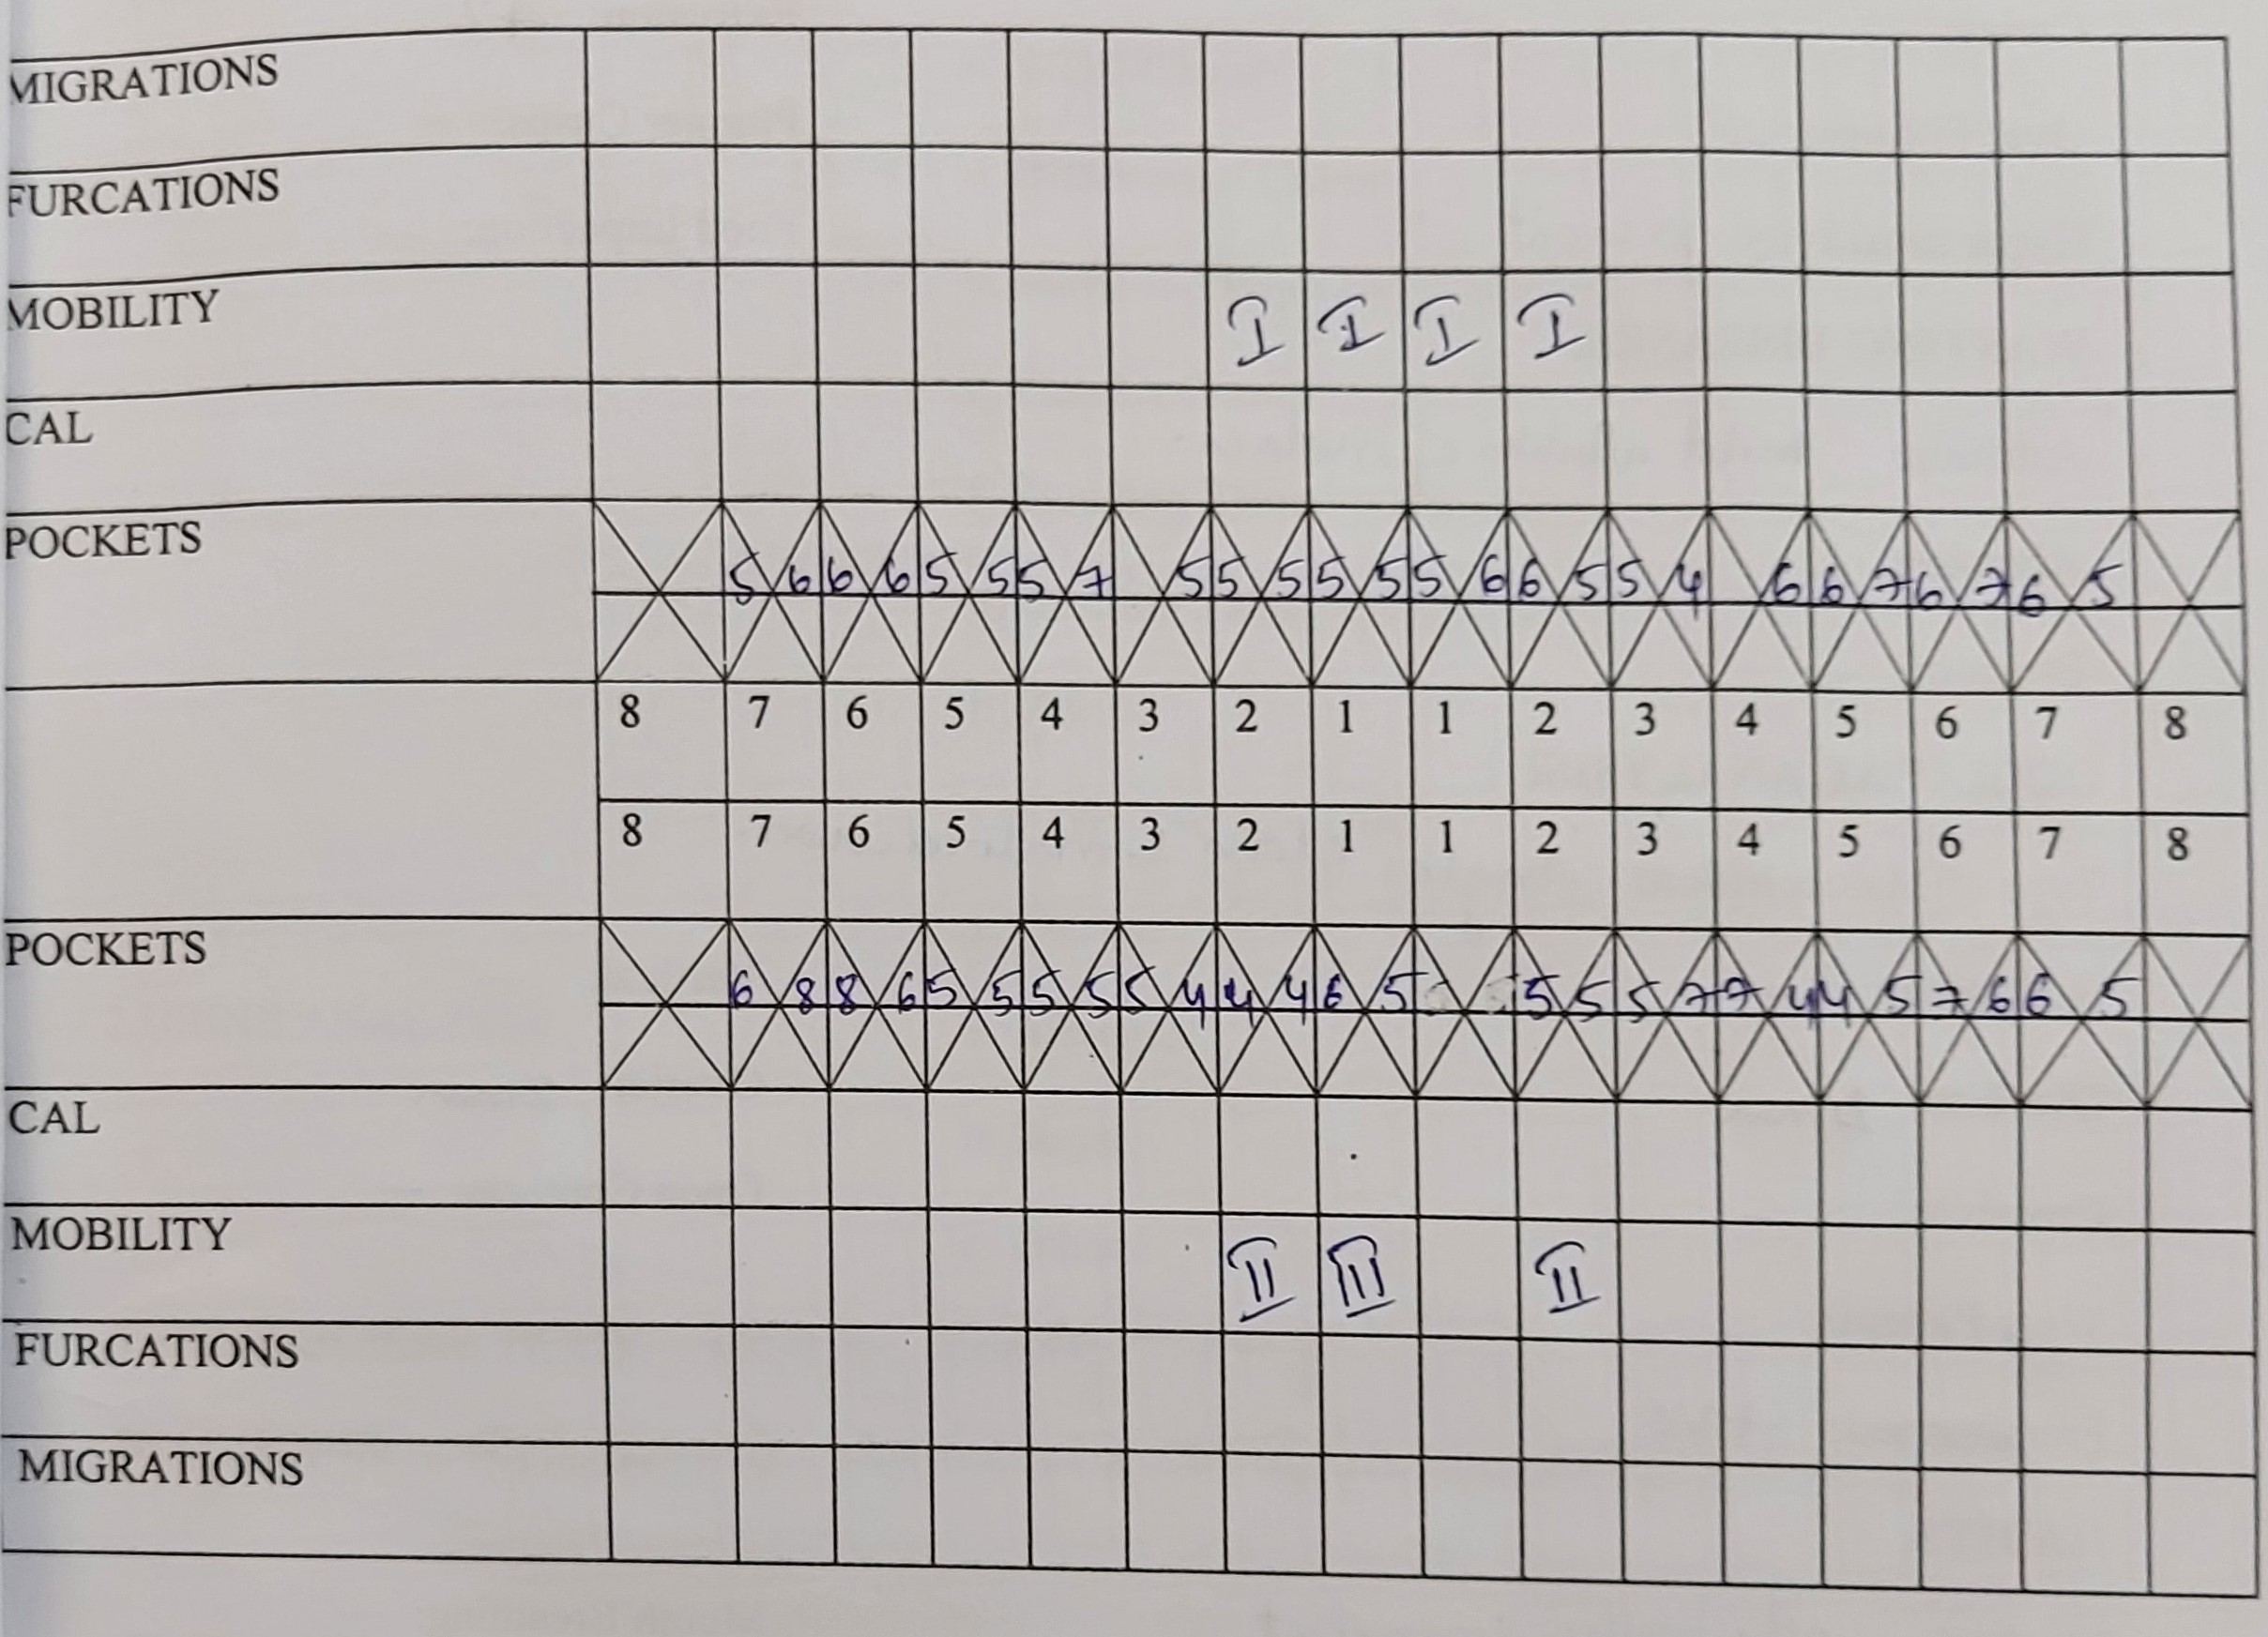 MIGRATIONS
FURCATIONS
MOBILITY I I I I
CAL
POCKETS 5 6 6 6 5 5 5 7 5 5 5 5 5 5 6 6 5 5 4 6 6 7 6 7 6 5
8 7 6 5 4 3 2 1 1 2 3 4 5 6 7 8
8 7 6 5 4 3 2 1 1 2 3 4 5 6 7 8
POCKETS 6 8 8 6 5 5 5 5 5 4 4 4 6 5 5 5 5 7 7 4 4 5 7 6 6 5
CAL
MOBILITY II III II
FURCATIONS
MIGRATIONS